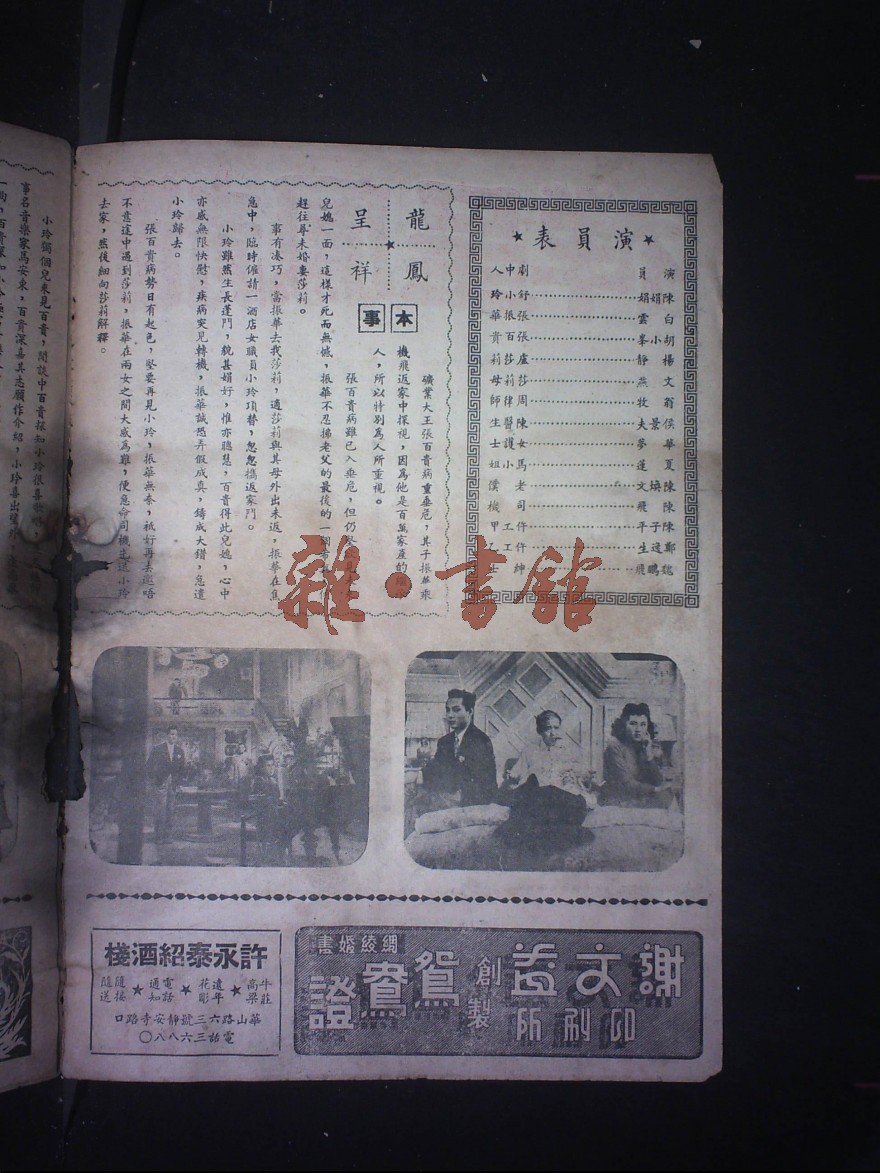 演員表
演員 劇中人
陳娟娟……舒小玲
白雲……張振華
胡小峯……張百貴
楊靜……盧莎莉
文燕……莎莉母
翁牧……周律師
侯景夫……陳醫生
華夢……女護士
夏蓬……馬小姐
陳煥文……老僕
陳飛……司機
陳子平……仵工甲
鄭逸生……仵工乙
魏鵬飛……紳士
龍鳳
呈祥
本事
礦業大王張百貴病重垂危，其子振華乘
機飛返家中探視，因為他是百萬家產的
人，所以特別為人所重視。
張百貴病雖已入垂危，但仍
兒媳一面，這樣才死而無憾，振華不忍拂老父的最後的一個希
趕往尋未婚妻莎莉。
事有凑巧，當振華去找莎莉，適莎莉與其母外出未返，振華在焦
急中，臨時僱請一酒店女職員小玲頂替，忽忽携返家門。
小玲雖然生長蓬門，貌甚娟好，惟亦聰慧，百貴得此兒媳，心中
亦感無限快慰，疾病突見轉機，振華誠恐弄假成真，鑄成大錯，急遣
小玲歸去。
張百貴病勢日有起色，堅要再見小玲，振華無奈，祇好再去邀唔
不意途中遇到莎莉，振華在兩女之間大感為難，便急命司機送小玲
去家，然後細向莎莉解釋。
小玲獨個兒來見百貴，閒談中百貴探知小玲很喜歡唱
事名音樂家馬安東，百貴深嘉其志願作介紹，小玲喜出望外
雜·書館
謝文益
印刷所
創製
鴛鴦證
綢綾婚書
許永泰紹酒棧
牛莊高粱★遠年花彫★電話通知★隨接隨送
華山路六三號靜安寺路口
電話三六八八〇